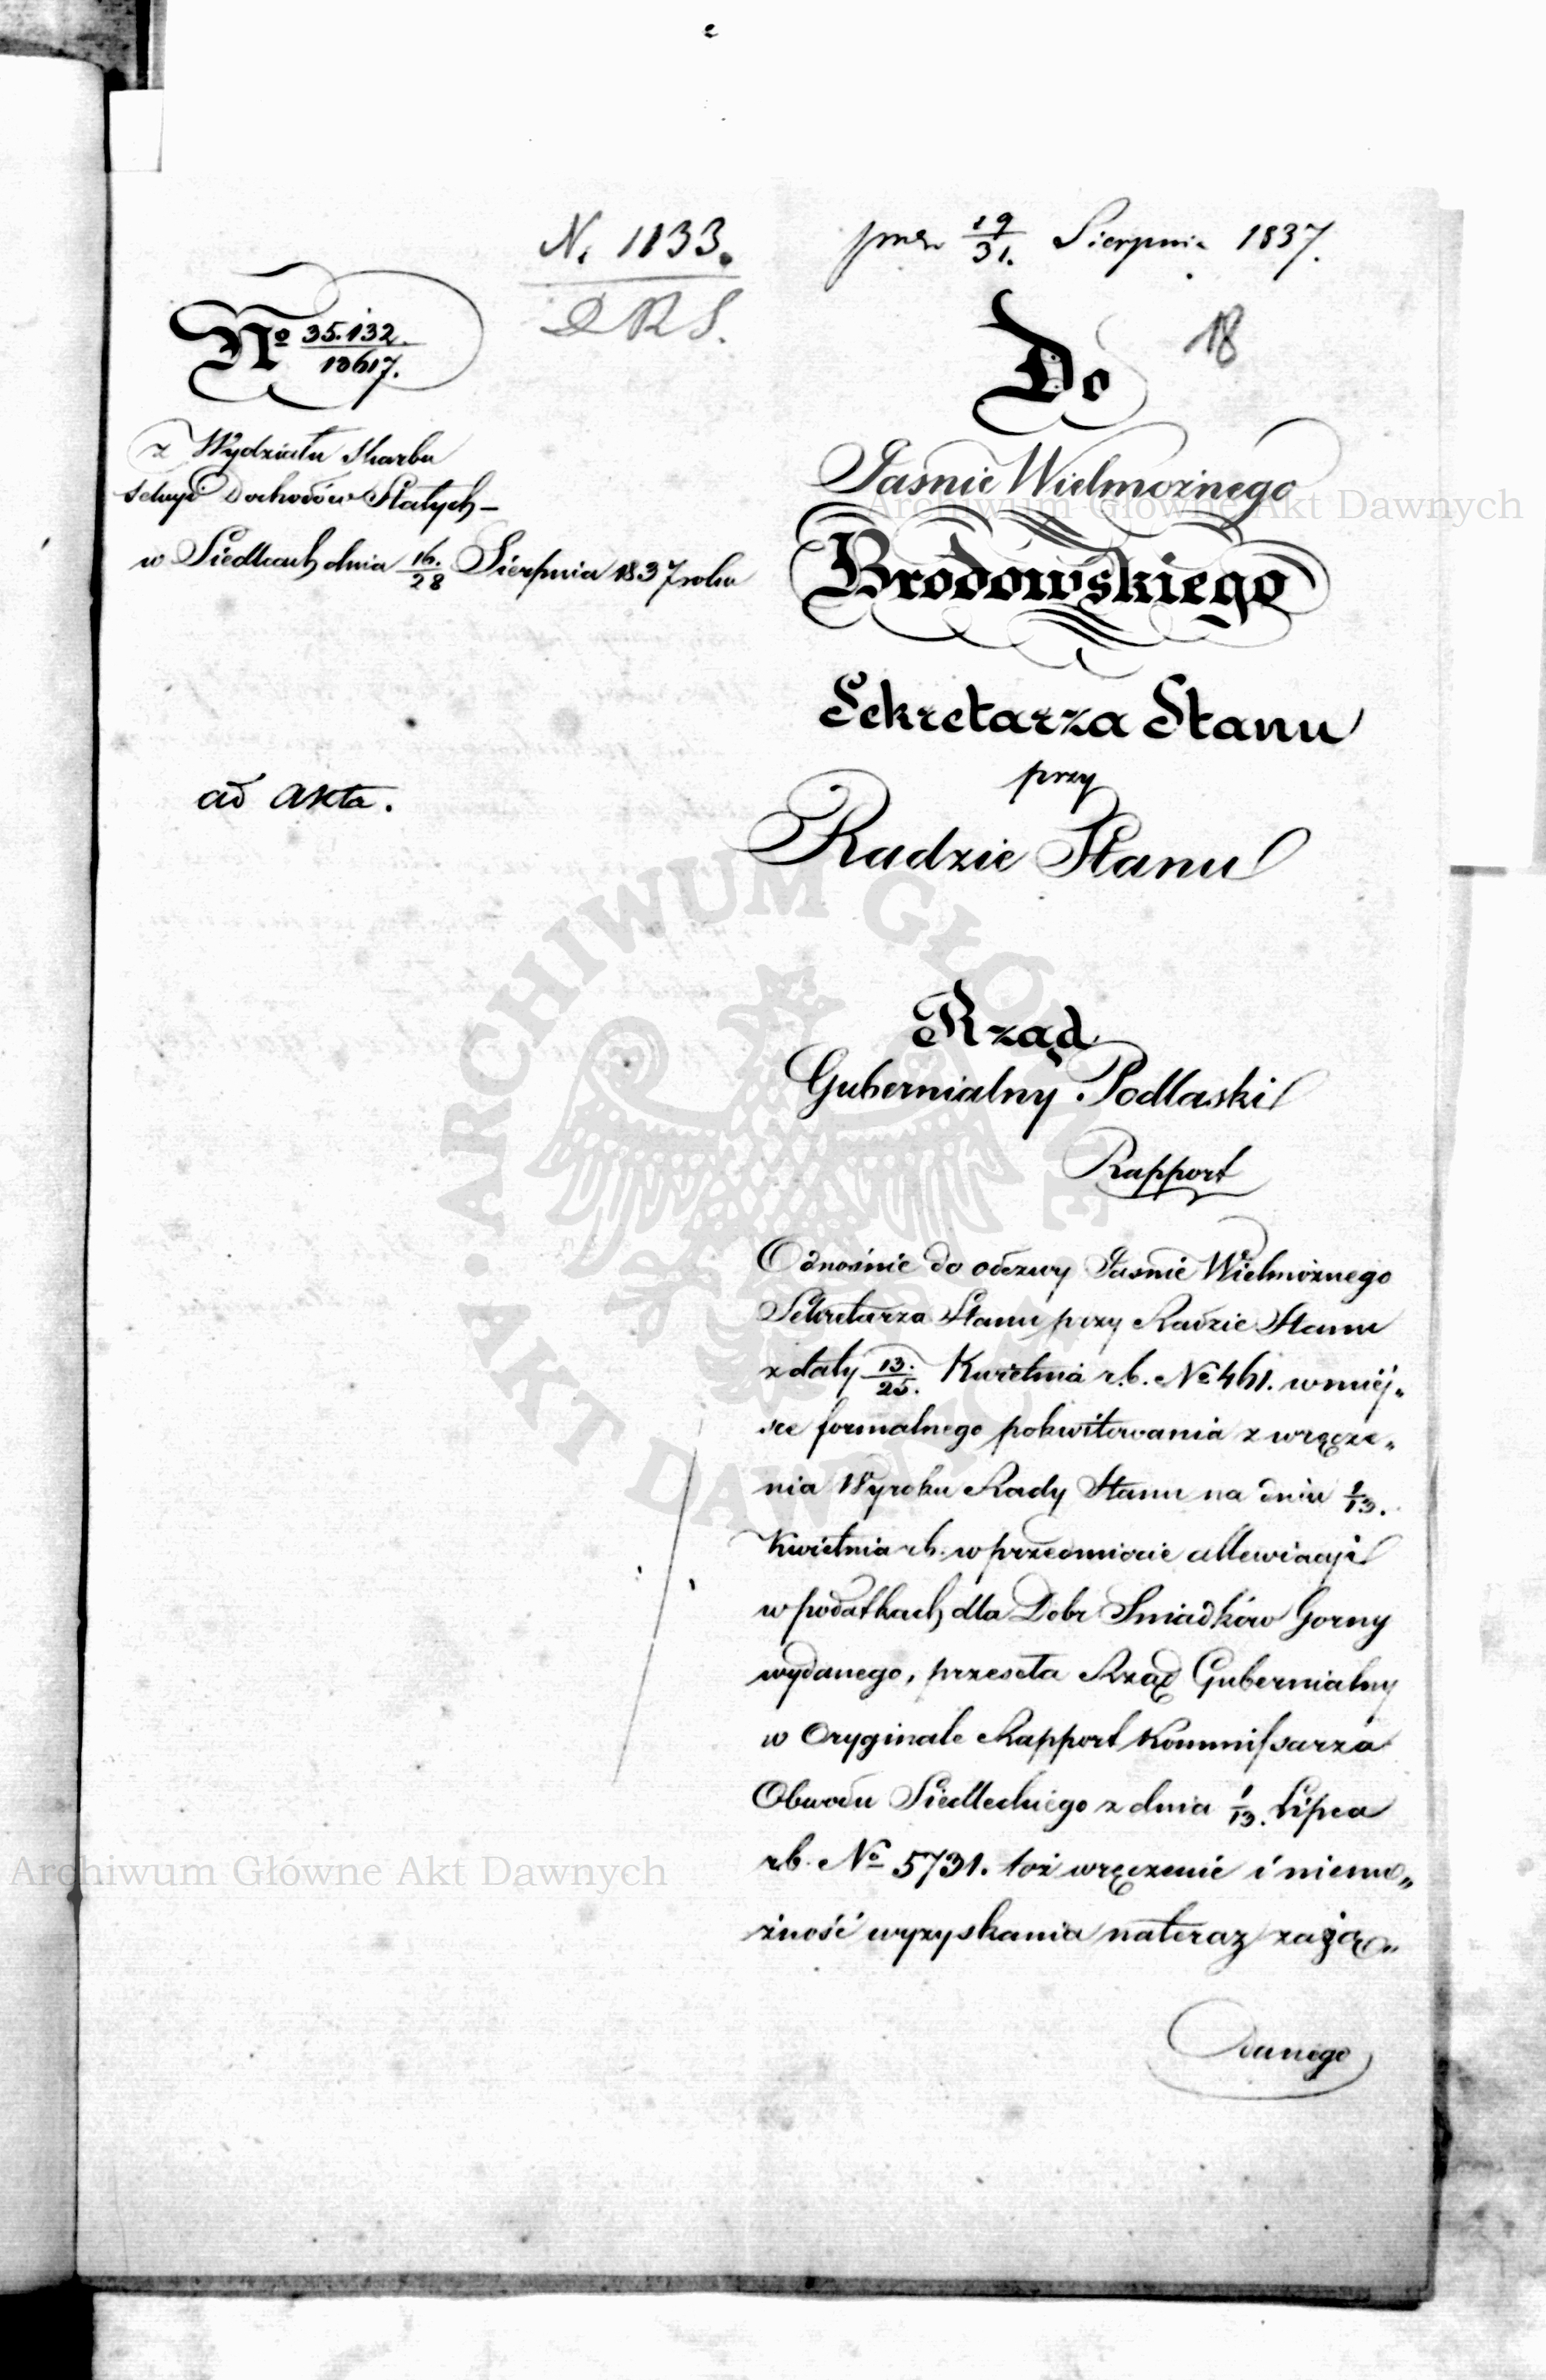 N. 1133.
D R S.
prez 19/31. Sierpnia 1837.
18
No 35.132./13617.
z Wydziału Skarbu
Sekcyi Dochodów Stałych –
w Siedlcach dnia 16./28 Sierpnia 1837 roku
ad acta.
Do
Jaśnie Wielmożnego
Brodowskiego
Sekretarza Stanu
przy
Radzie Stanu
Rząd
Gubernialny Podlaski
Rapport
Odnośnie do odezwy Jaśnie Wielmożnego
Sekretarza Stanu przy Radzie Stanu
z daty 13./25. Kwietnia r.b. No 461. w miej„
sce formalnego pokwitowania z wręcze„
nia Wyroku Rady Stanu na dniu 1/13.
Kwietnia r.b. w przedmiocie allewiacyi
w podatkach dla Dobr Smiadków Gorny
wydanego, przeseła Rząd Gubernialny
w Oryginale Rapport Kommissarza
Obwodu Siedleckiego z dnia 1/13. Lipca
r.b. No 5731. toż wręczenie i niemo„
żność wyzyskania nateraz zażą„
danego
Archiwum Główne Akt Dawnych
ARCHIWUM GŁÓWNE • AKT DAWNYCH •
Archiwum Główne Akt Dawnych